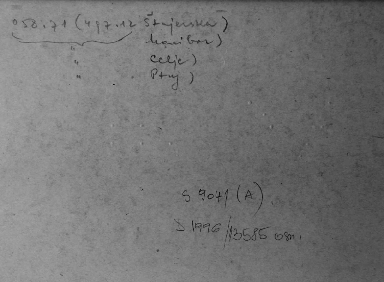 058.71 (497.12 Štajerska)
" Maribor)
" Celje)
" Ptuj)
S 9071 (A)
S 1996/13585 osn.